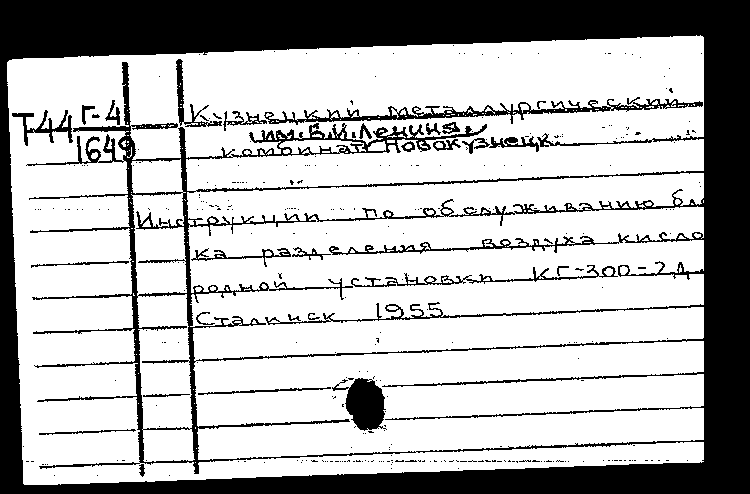 Т44 Г-4
1649
Кузнецкий металлургический
им. В.И. Ленина.
комбинат Новокузнецк.
Инструкции по обслуживанию бло
ка разделения воздуха кисло
родной установки КГ-300-2Д.
Сталинск 1955